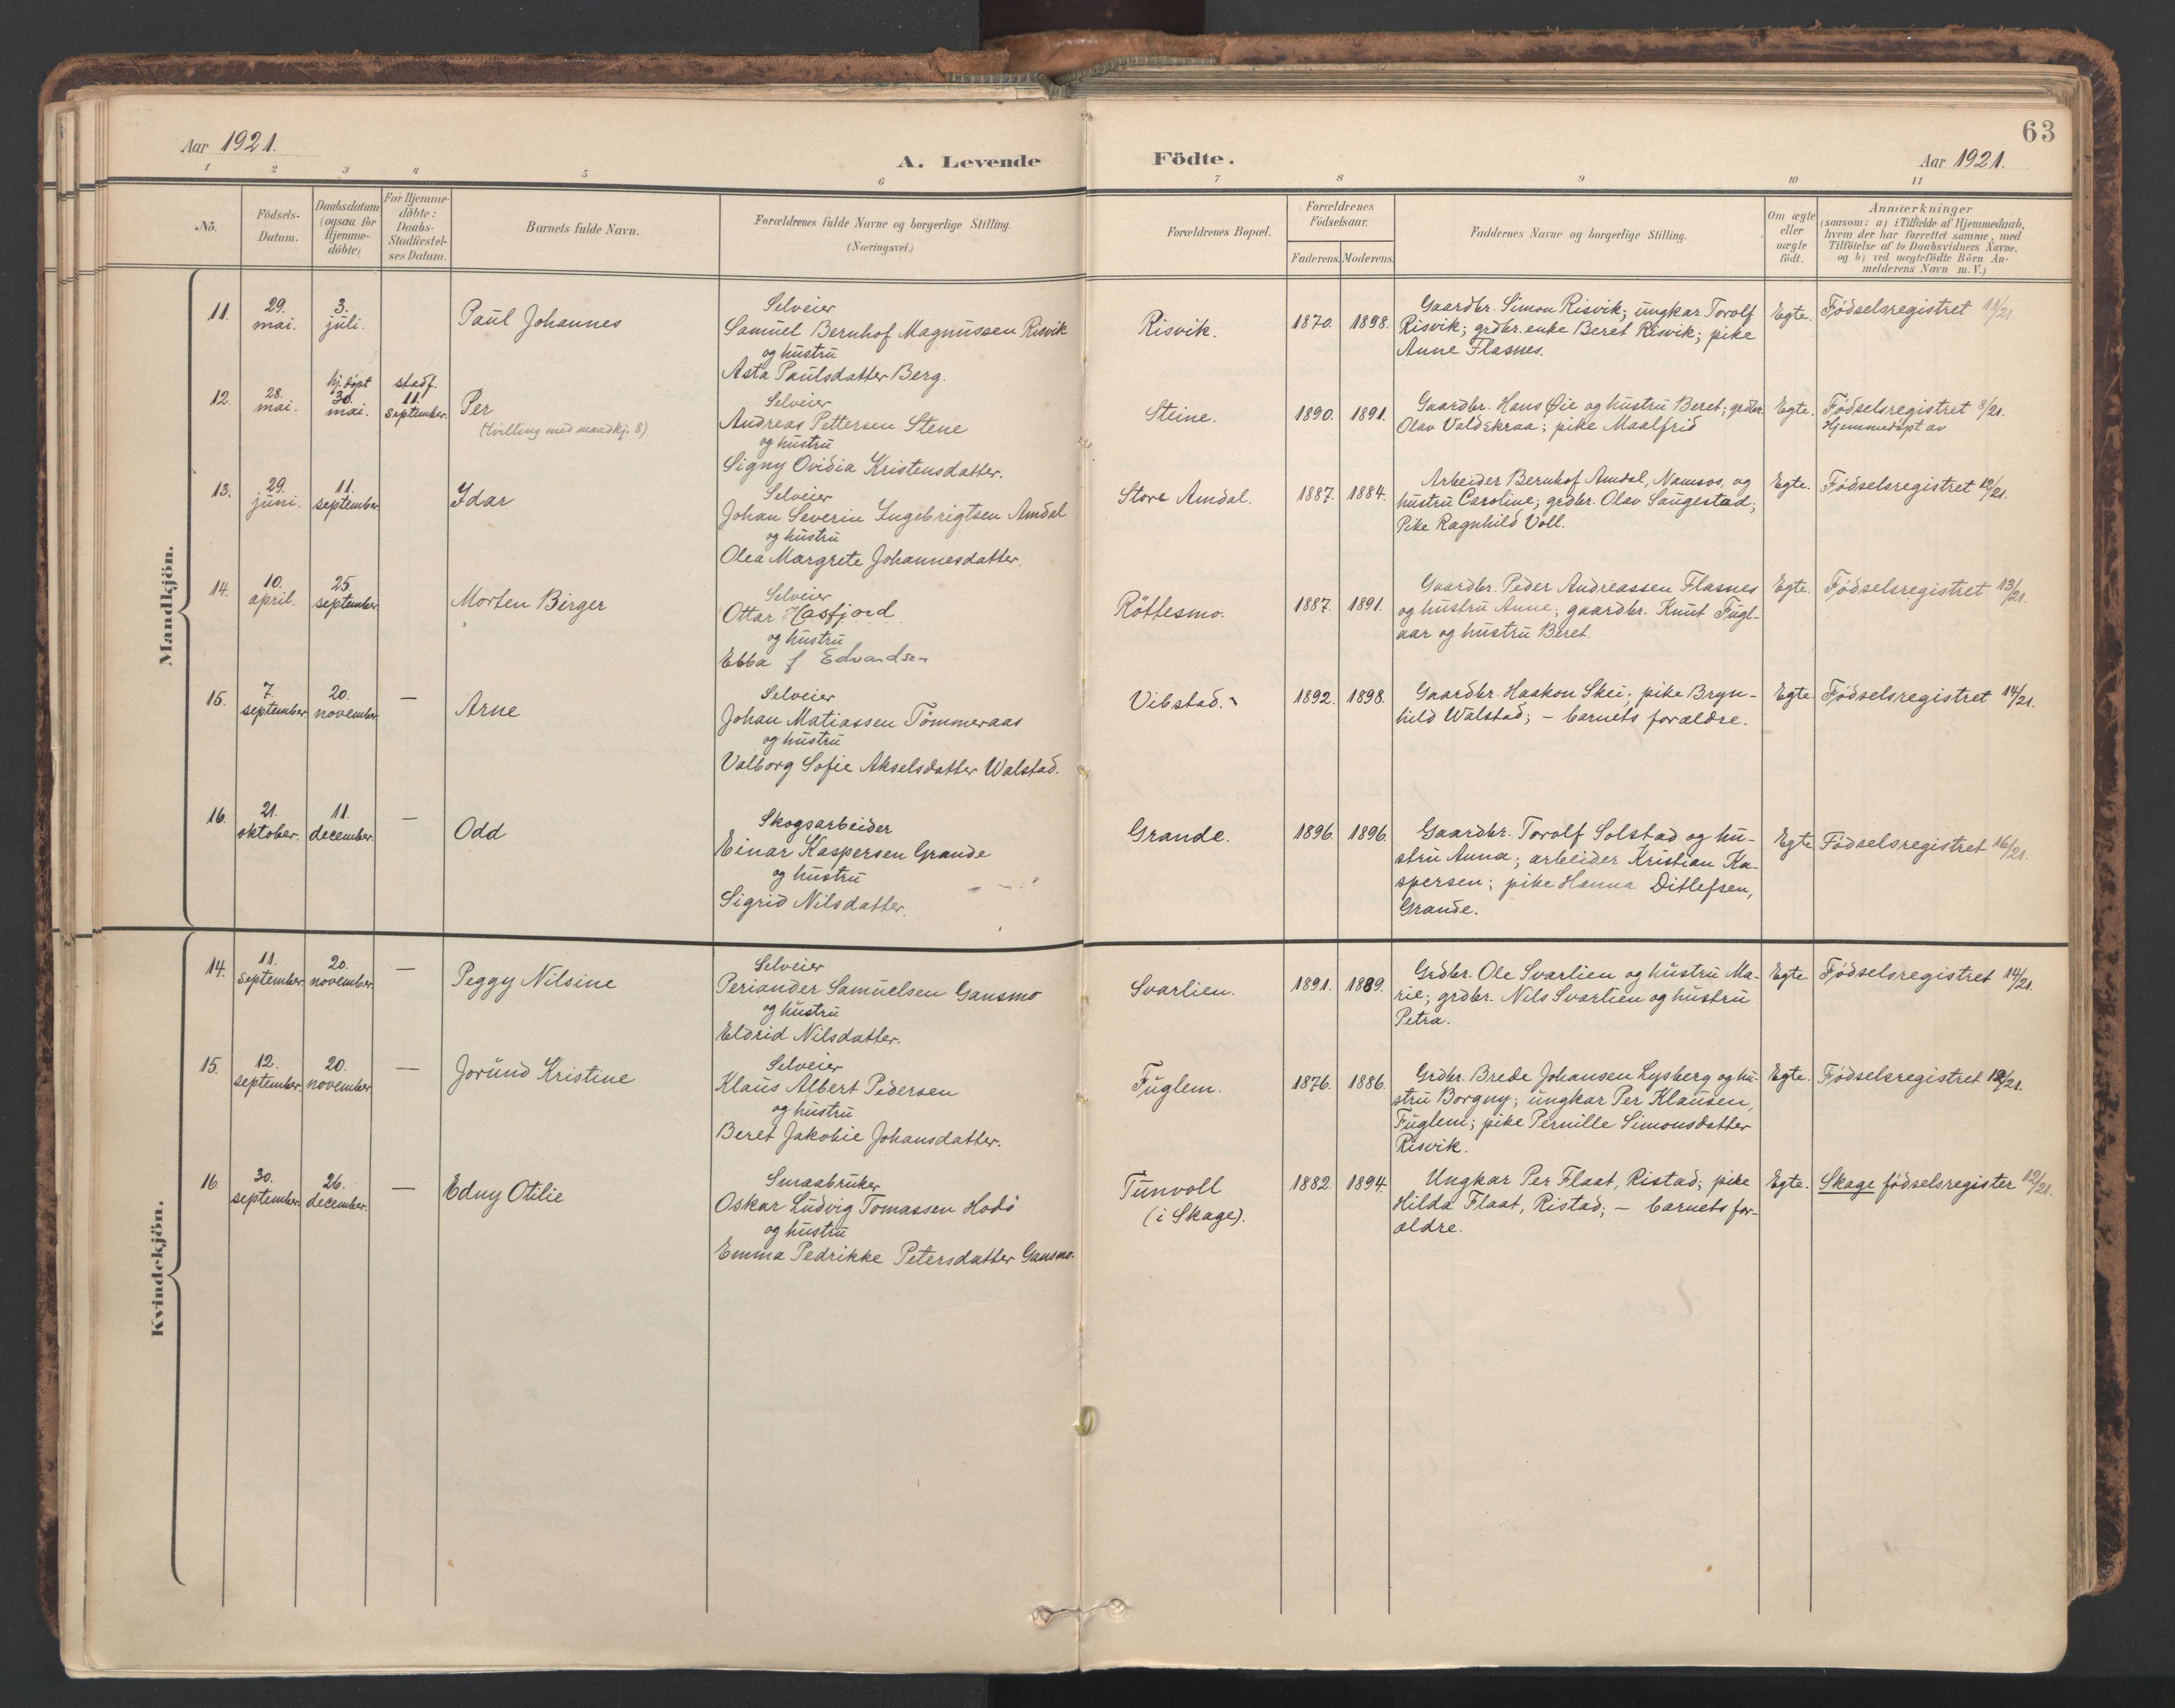 63
Aar 1921.
A. Levende Födte.
Aar 1921.
1 2 3 4 5 6 7 8 9 10 11
No.
Födsels-
Datum.
Daabsdatum
(ogsaa for
Hjemme-
döbte)
For Hjemme-
döbte:
Daabs-
Stadfæstel-
ses Datum.
Barnets fulde Navn.
Forældrenes fulde Navne og borgerlige Stilling.
(Næringsvei.)
Forældrenes Bopæl.
Forældrenes
Födselsaar.
Faderens. Moderens.
Faddernes Navne og borgerlige Stilling.
Om ægte
eller
uægte
födt.
Anmærkninger
(saasom: a) i Tilfælde af Hjemmedaab,
hvem der har forrettet samme, med
Tilföielse af to Daabsvidners Navne.
og b) ved uægtefödte Börn An-
melderens Navn m. V.)
Mandkjön.
11.
29.
mai.
3.
juli.
Paul Johannes
Selveier
Samuel Bernhof Magnussen Risvik
og hustru
Asta Paulsdatter Berg.
Risvik.
1870. 1898.
Gaardbr. Simon Risvik; ungkar Torolf
Risvik; grdbr. enke Beret Risvik; pike
Anne Flasnes.
Egte.
Fødselsregistret 11/21
12.
28.
mai.
hj. døpt
30.
mai.
stadf.
11.
september.
Per
(tvilling med mandkj. 8).
Selveier
Andreas Pettersen Stene
og hustru
Signy Ovidia Kristensdatter.
Steine.
1890. 1891.
Gaardbr. Hans Øie og hustru Beret; grdbr.
Olav Valdskraa; pike Maalfrid
Egte.
Fødselsregistret 8/21.
Hjemmedøpt av
13.
29.
juni.
11.
september.
Idar
Selveier
Johan Severin Ingebrigtsen Amdal
og hustru
Olea Margrete Johannesdatter.
Store Amdal.
1887. 1884.
Arbeider Bernhof Amdal, Namsos, og
hustru Caroline; grdbr. Olav Saugestad;
Pike Ragnhild Voll.
Egte.
Fødselsregistret 12/21.
14.
10.
april.
25.
september
Morten Birger
Selveier
Ottar Hasfjord
og hustru
Ebba f Edvardsen
Röttesmo.
1887. 1891.
Gaardbr. Peder Andreassen Flasnes
og hustru Anne; gaardbr. Knut Fugl-
aar og hustru Beret.
Egte.
Fødselsregistret 13/21.
15.
7.
september
20.
november
—
Arne
Selveier
Johan Matiassen Tömmeraas
og hustru
Valborg Sofie Akselsdatter Walstad.
Vibstad.
1892. 1898.
Gaardbr. Haakon Skei; pike Bryn-
hild Walstad; – barnets forældre.
Egte.
Fødselsregistret 14/21.
16.
21.
oktober.
11.
december.
—
Odd
Skogsarbeider
Einar Kaspersen Grande
og hustru
Sigrid Nilsdatter.
Grande.
1896. 1896.
Gaardbr. Torolf Solstad og hu-
stru Anna; arbeider Kristian Ka-
spersen; pike Hanna Ditlefsen,
Grande.
Egte
Fødselsregistret 16/21.
Kvindekjön.
14.
11.
september.
20.
november.
—
Peggy Nilsine
Selveier
Periander Samuelsen Gansmo
og hustru
Eldrid Nilsdatter.
Svarlien.
1891. 1889.
Grdbr. Ole Svarlien og hustru Ma-
rie; grdbr. Nils Svarlien og hustru
Petra.
Egte.
Fødselsregistret 14/21.
15.
12.
september.
20.
november.
—
Jorund Kristine
Selveier
Klaus Albert Pedersen
og hustru
Beret Jakobie Johansdatter.
Fuglem.
1876. 1886.
Grdbr. Brede Johansen Lysberg og hu-
stru Borgny; ungkar Per Klausen,
Fuglem; pike Pernille Simonsdatter
Risvik.
Egte.
Fødselsregistret
16.
30.
september.
26.
december.
—
Edny Otilie
Smaabruker
Oskar Ludvig Tomassen Hodö
og hustru
Emma Pedrikke Petersdatter Gansmo.
Tunvoll
(i Skage).
1882 1894.
Ungkar Per Flaat, Ristad; pike
Hilda Flaat, Ristad; – barnets for-
ældre.
Egte.
Skage fødselsregister 12/21.